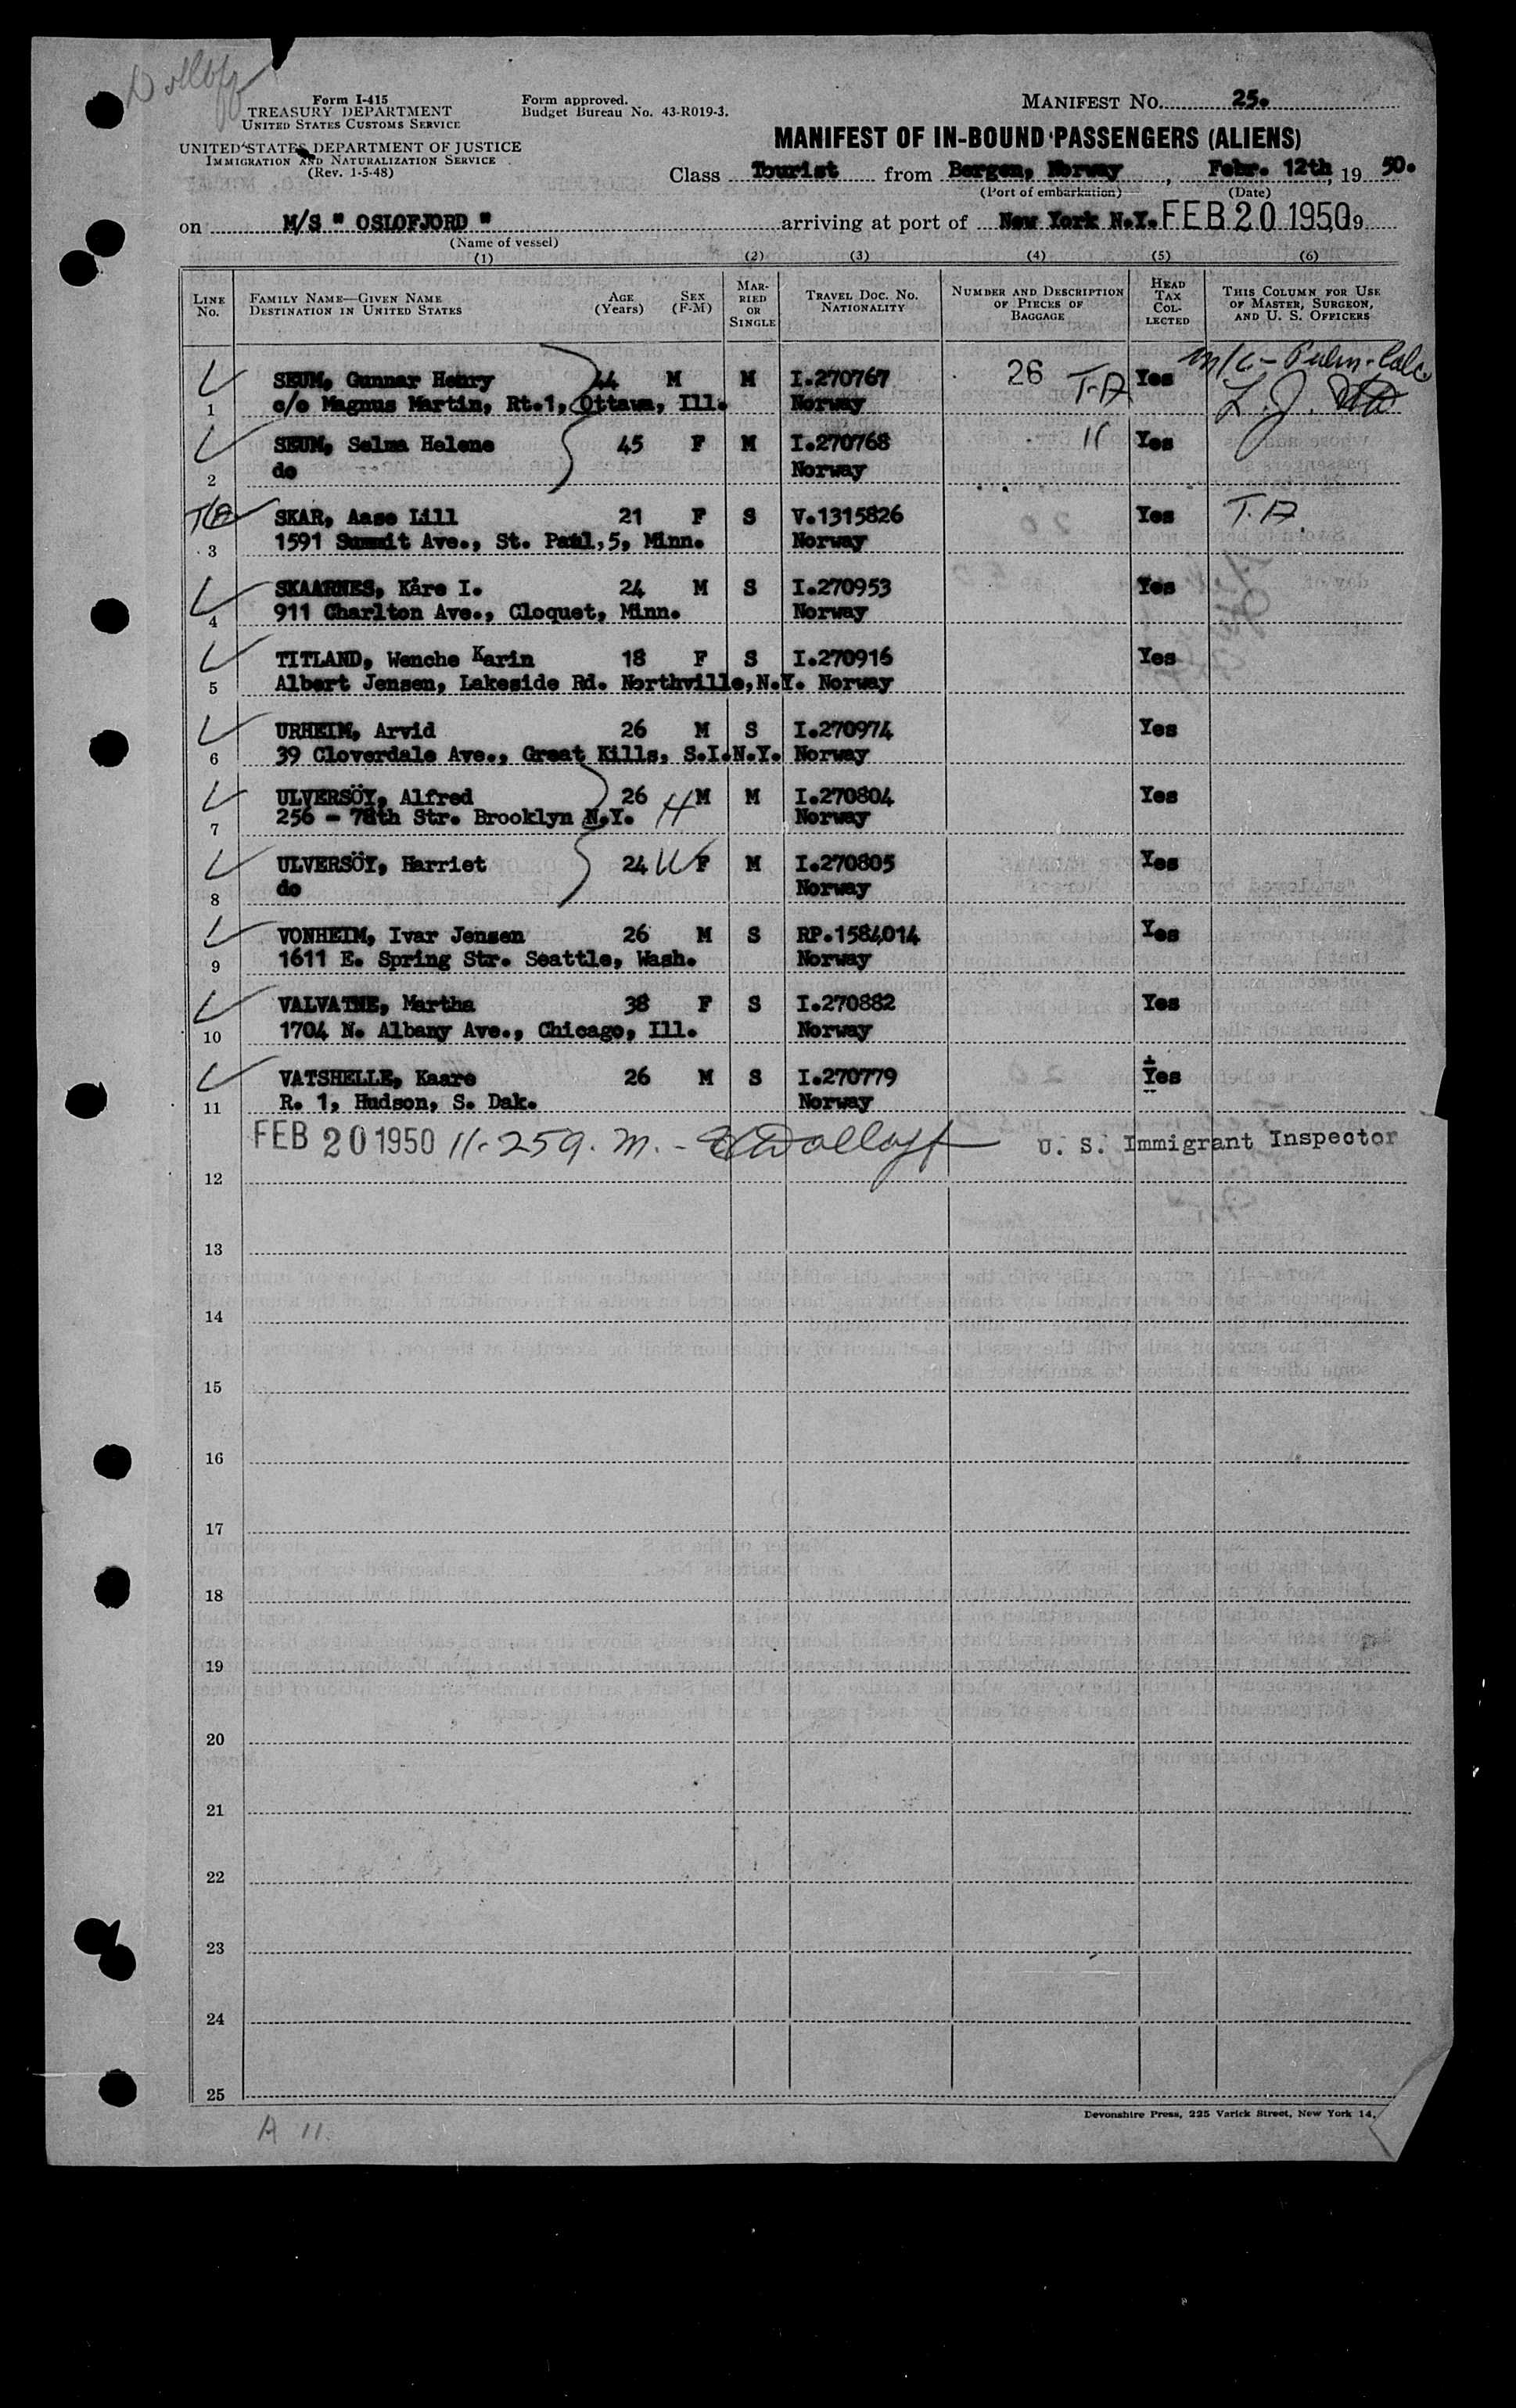 Dolloff
Form I-415
TREASURY DEPARTMENT
UNITED STATES CUSTOMS SERVICE
UNITED STATES DEPARTMENT OF JUSTICE
IMMIGRATION AND NATURALIZATION SERVICE
(Rev. 1-5-48)
Form approved.
Budget Bureau No. 43-R019-3.
MANIFEST NO. 25.
MANIFEST OF IN-BOUND PASSENGERS (ALIENS)
Class Tourist from Bergen, Norway, Febr. 12th, 19 50.
(Port of embarkation) (Date)
on M/S " OSLOFJORD " arriving at port of New York N.Y. FEB 20 1950 19
(Name of vessel)
(1) (2) (3) (4) (5) (6)
LINE No. FAMILY NAME—GIVEN NAME DESTINATION IN UNITED STATES AGE (YEARS) SEX (F-M) MARRIED OR SINGLE TRAVEL DOC. NO. NATIONALITY NUMBER AND DESCRIPTION OF PIECES OF BAGGAGE HEAD TAX COLLECTED THIS COLUMN FOR USE OF MASTER, SURGEON, AND U. S. OFFICERS
SEUM, Gunnar Henry 44 M M I.270767 26 T.A Yes m/c - Pulm. Calc
1 c/o Magnus Martin, Rt.1, Ottawa, Ill. Norway L. J.
SEUM, Selma Helene 45 F M I.270768 11 Yes
2 do Norway
SKAR, Aase Lill 21 F S V.1315826 Yes T.A.
3 1591 Summit Ave., St. Paul,5, Minn. Norway
SKAARNES, Kåre I. 24 M S I.270953 Yes
4 911 Charlton Ave., Cloquet, Minn. Norway
TITLAND, Wenche Karin 18 F S I.270916 Yes
5 Albert Jensen, Lakeside Rd. Northville,N.Y. Norway
URHEIM, Arvid 26 M S I.270974 Yes
6 39 Cloverdale Ave., Great Kills, S.I.N.Y. Norway
ULVERSÖY, Alfred 26 H M M I.270804 Yes
7 256 - 78th Str. Brooklyn N.Y. Norway
ULVERSÖY, Harriet 24 W F M I.270805 Yes
8 do Norway
VONHEIM, Ivar Jensen 26 M S RP.1584014 Yes
9 1611 E. Spring Str. Seattle, Wash. Norway
VALVATNE, Martha 38 F S I.270882 Yes
10 1704 N. Albany Ave., Chicago, Ill. Norway
VATSHELLE, Kaare 26 M S I.270779 Yes
11 R. 1, Hudson, S. Dak. Norway
FEB 20 1950 11-25 a.m. - E Dolloff U. S. Immigrant Inspector
12
13
14
15
16
17
18
19
20
21
22
23
24
25
Devonshire Press, 225 Varick Street, New York 14,
A 11.